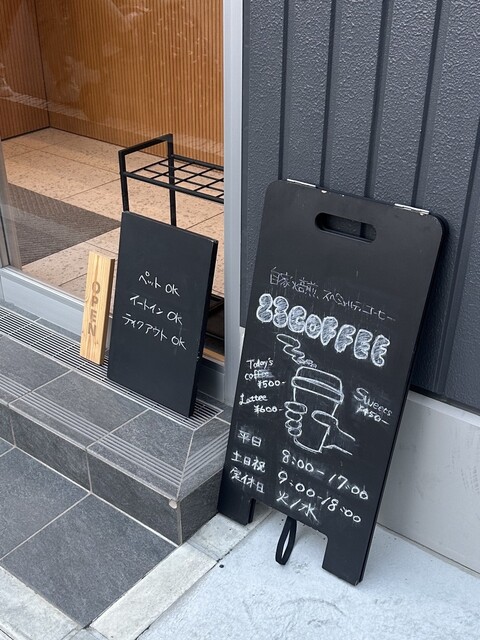 OPEN
ペット OK
イートイン OK
テイクアウト OK
自家焙煎、スペシャルティコーヒー
COFFEE
Today's
coffee
¥500-
Lattee
¥600-
Sweets
¥450-
平日 8:00-17:00
土日祝 9:00-18:00
定休日 火/水